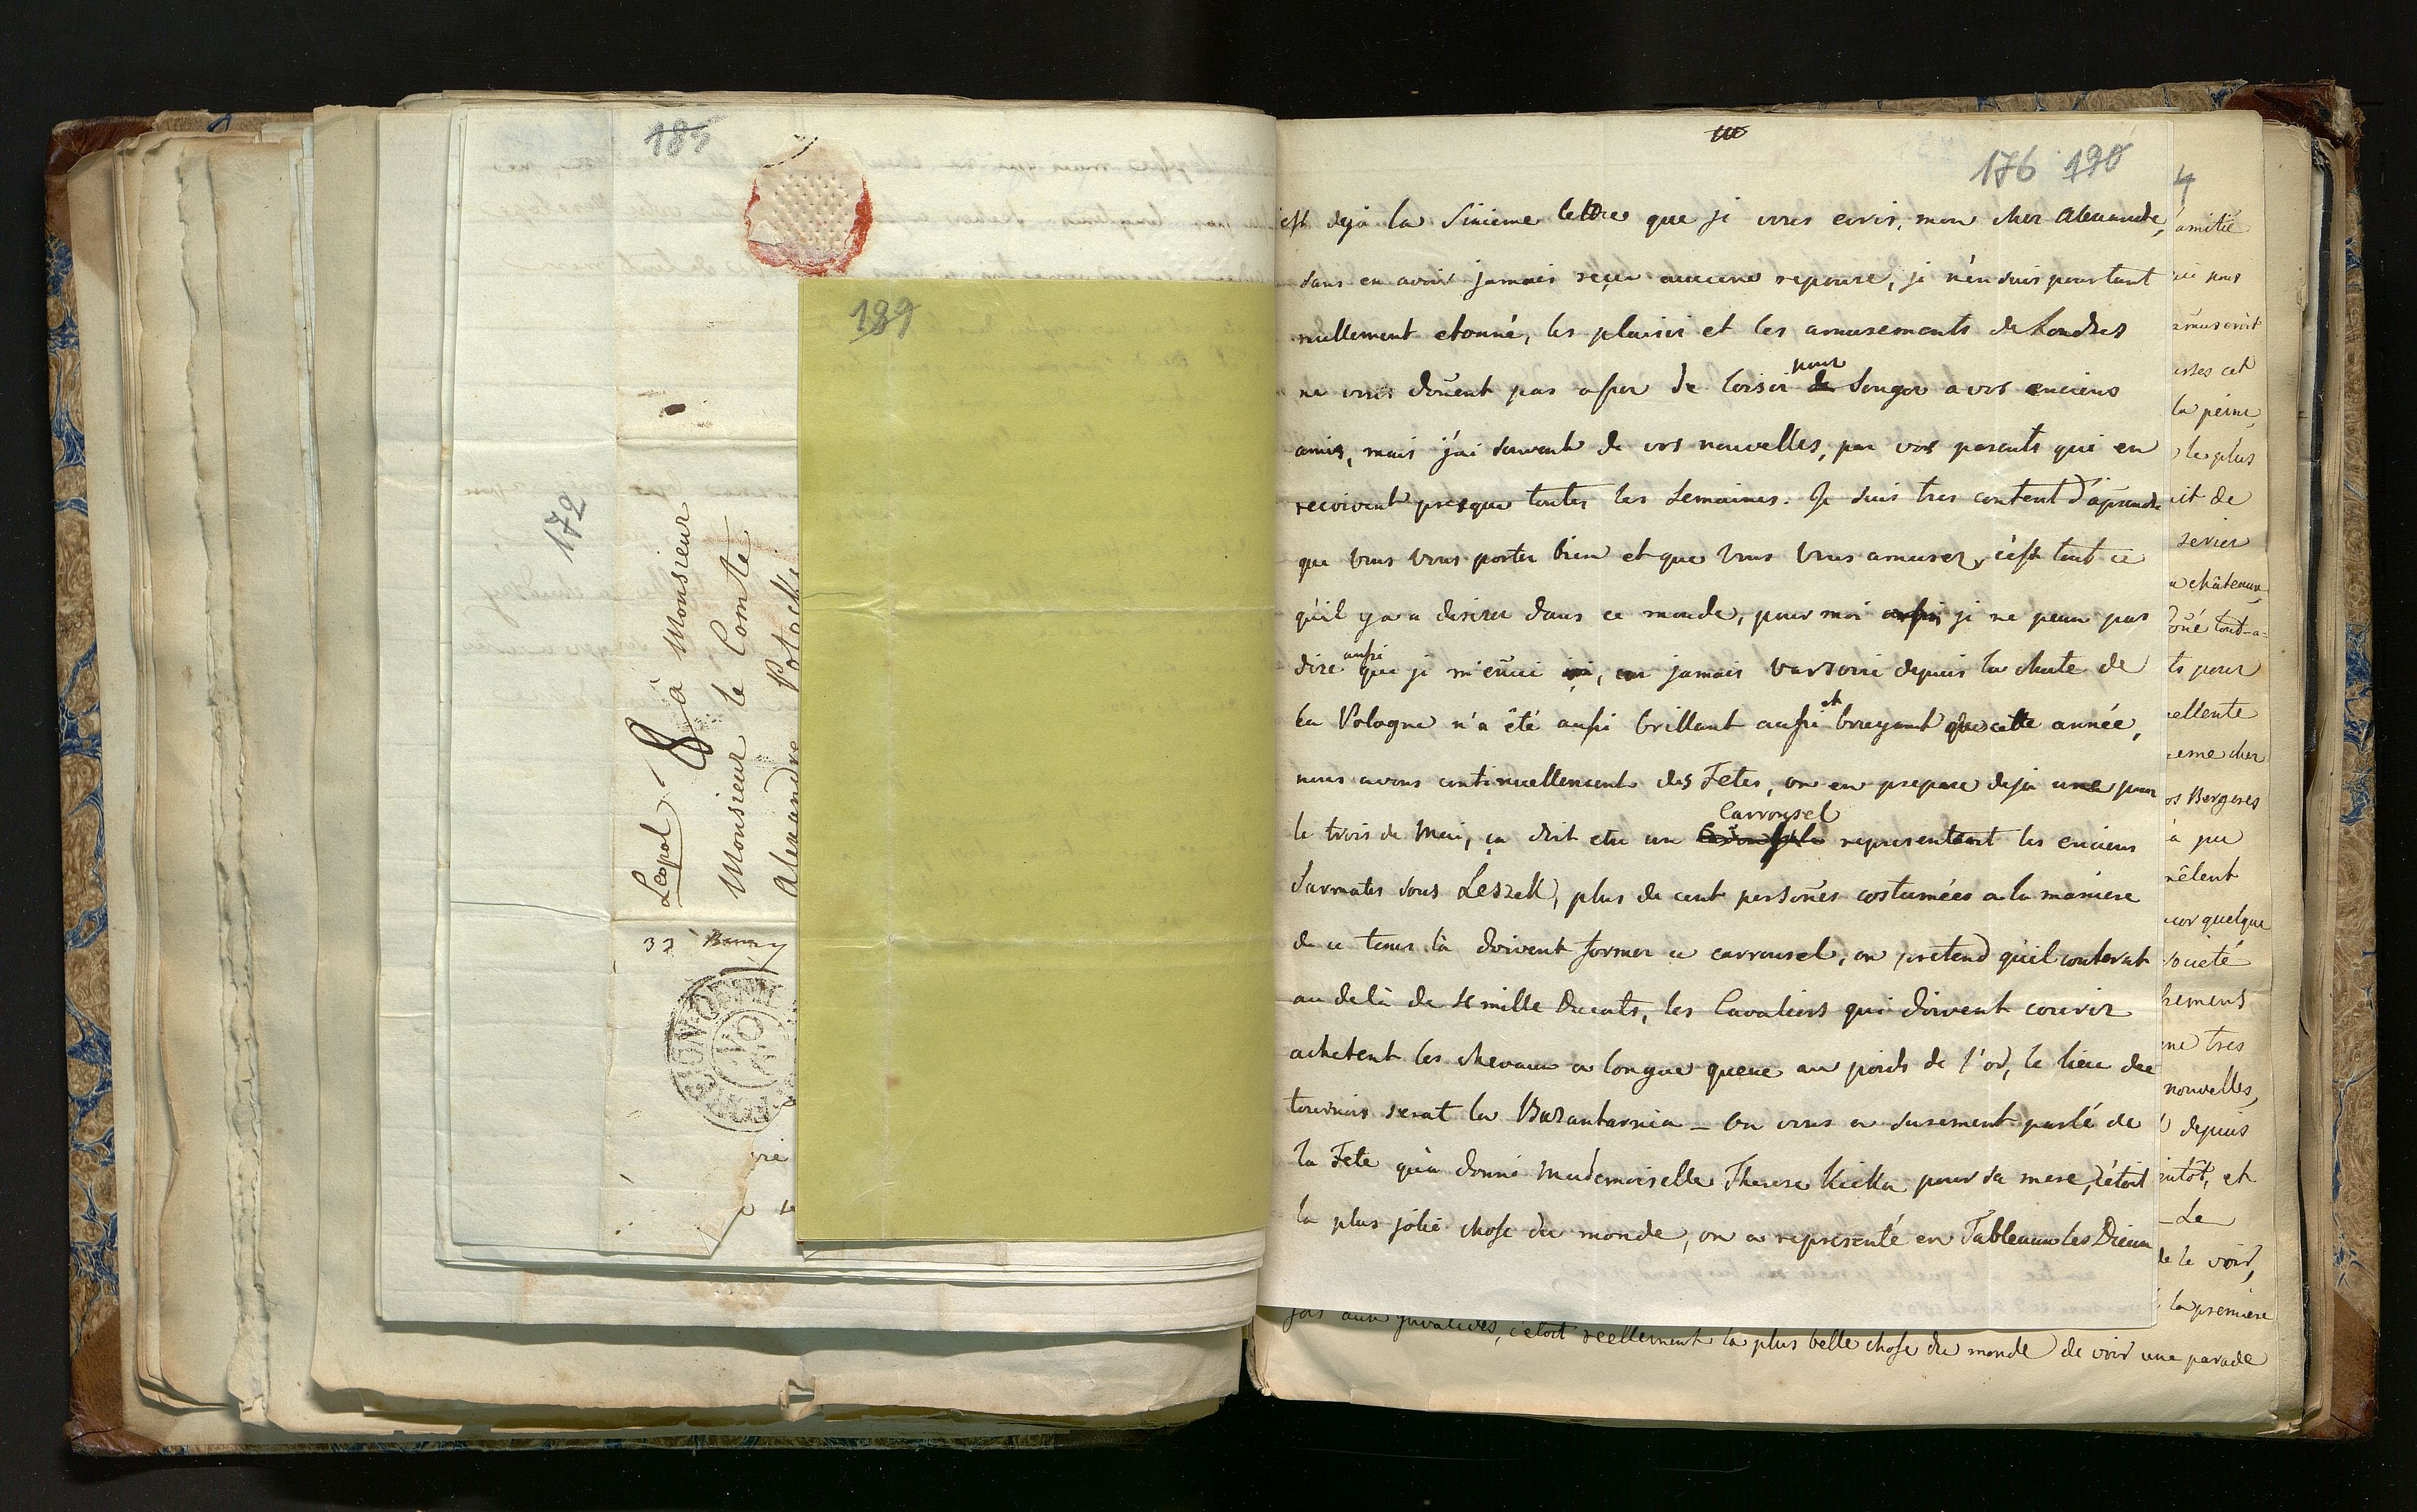 185
189
172
Leopol
8
à Monsieur
Monsieur le Comte
Alexandre Potocki
32
FOREIGN OFFICE
176 190
est deja la sixieme lettre que je vous ecris, mon cher Alexandre,
sans en avoir jamais reçu aucune reponse, je n'en suis pourtant
nullement etonné, les plaisir et les amusements de Londres
ne vous doñent pas assez de loisir de pour songer a vos enciens
amis, mais j'ai souvent de vos nouvelles, par vos parents qui en
recoivent presque toutes les semaines. Je suis tres content d'aprendre
que vous vous porter bien et que vous vous amusez, c'est tout ce
qu'il y a a desirer dans ce monde, pour moi aussi je ne peux pas
dire aussi que je m'eñuie ici, car jamais Varsovie depuis la chute de
la Pologne n'a été aussi brillant aussi et bruyant que cette année,
nous avons continuellement des Fetes, on en prepare deja une pour
le trois de Mai, ça doit etre un Carrousel representant les enciens
Sarmates sous Leszek, plus de cent persoñes costumées a la maniere
de ce tems là doivent former ce carrousel, on pretend qu'il couterat
au delà de mille Ducats, les Cavaliers qui doivent courir
achetent les chevaux a longue queue au poids de l'or, le lieu des
tournois serat la Bazantarnia – On vous a surement parlé de
la Fete qu'a donné Mademoiselle Therese Kicka pour sa mere, c'étoit
la plus jolie chose du monde, on a representé en Tableaux les Dieux
4
amitié
nous
amuseroit
la peine,
le plus
de
château
tout-a-
ts pour
cher
os Bergeres
a pu
quelque
societé
tres
nouvelles,
depuis
et
– Le
de le voir,
la premiere
aux invalides, c'etoit reellement la plus belle chose du monde de voir une parade